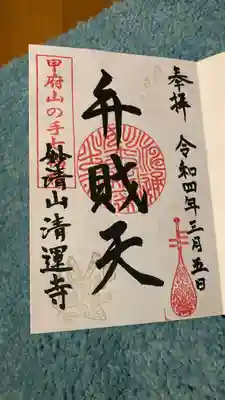 奉拝 令和四年三月五日
弁賎天
甲府山の手
妙清山清運寺